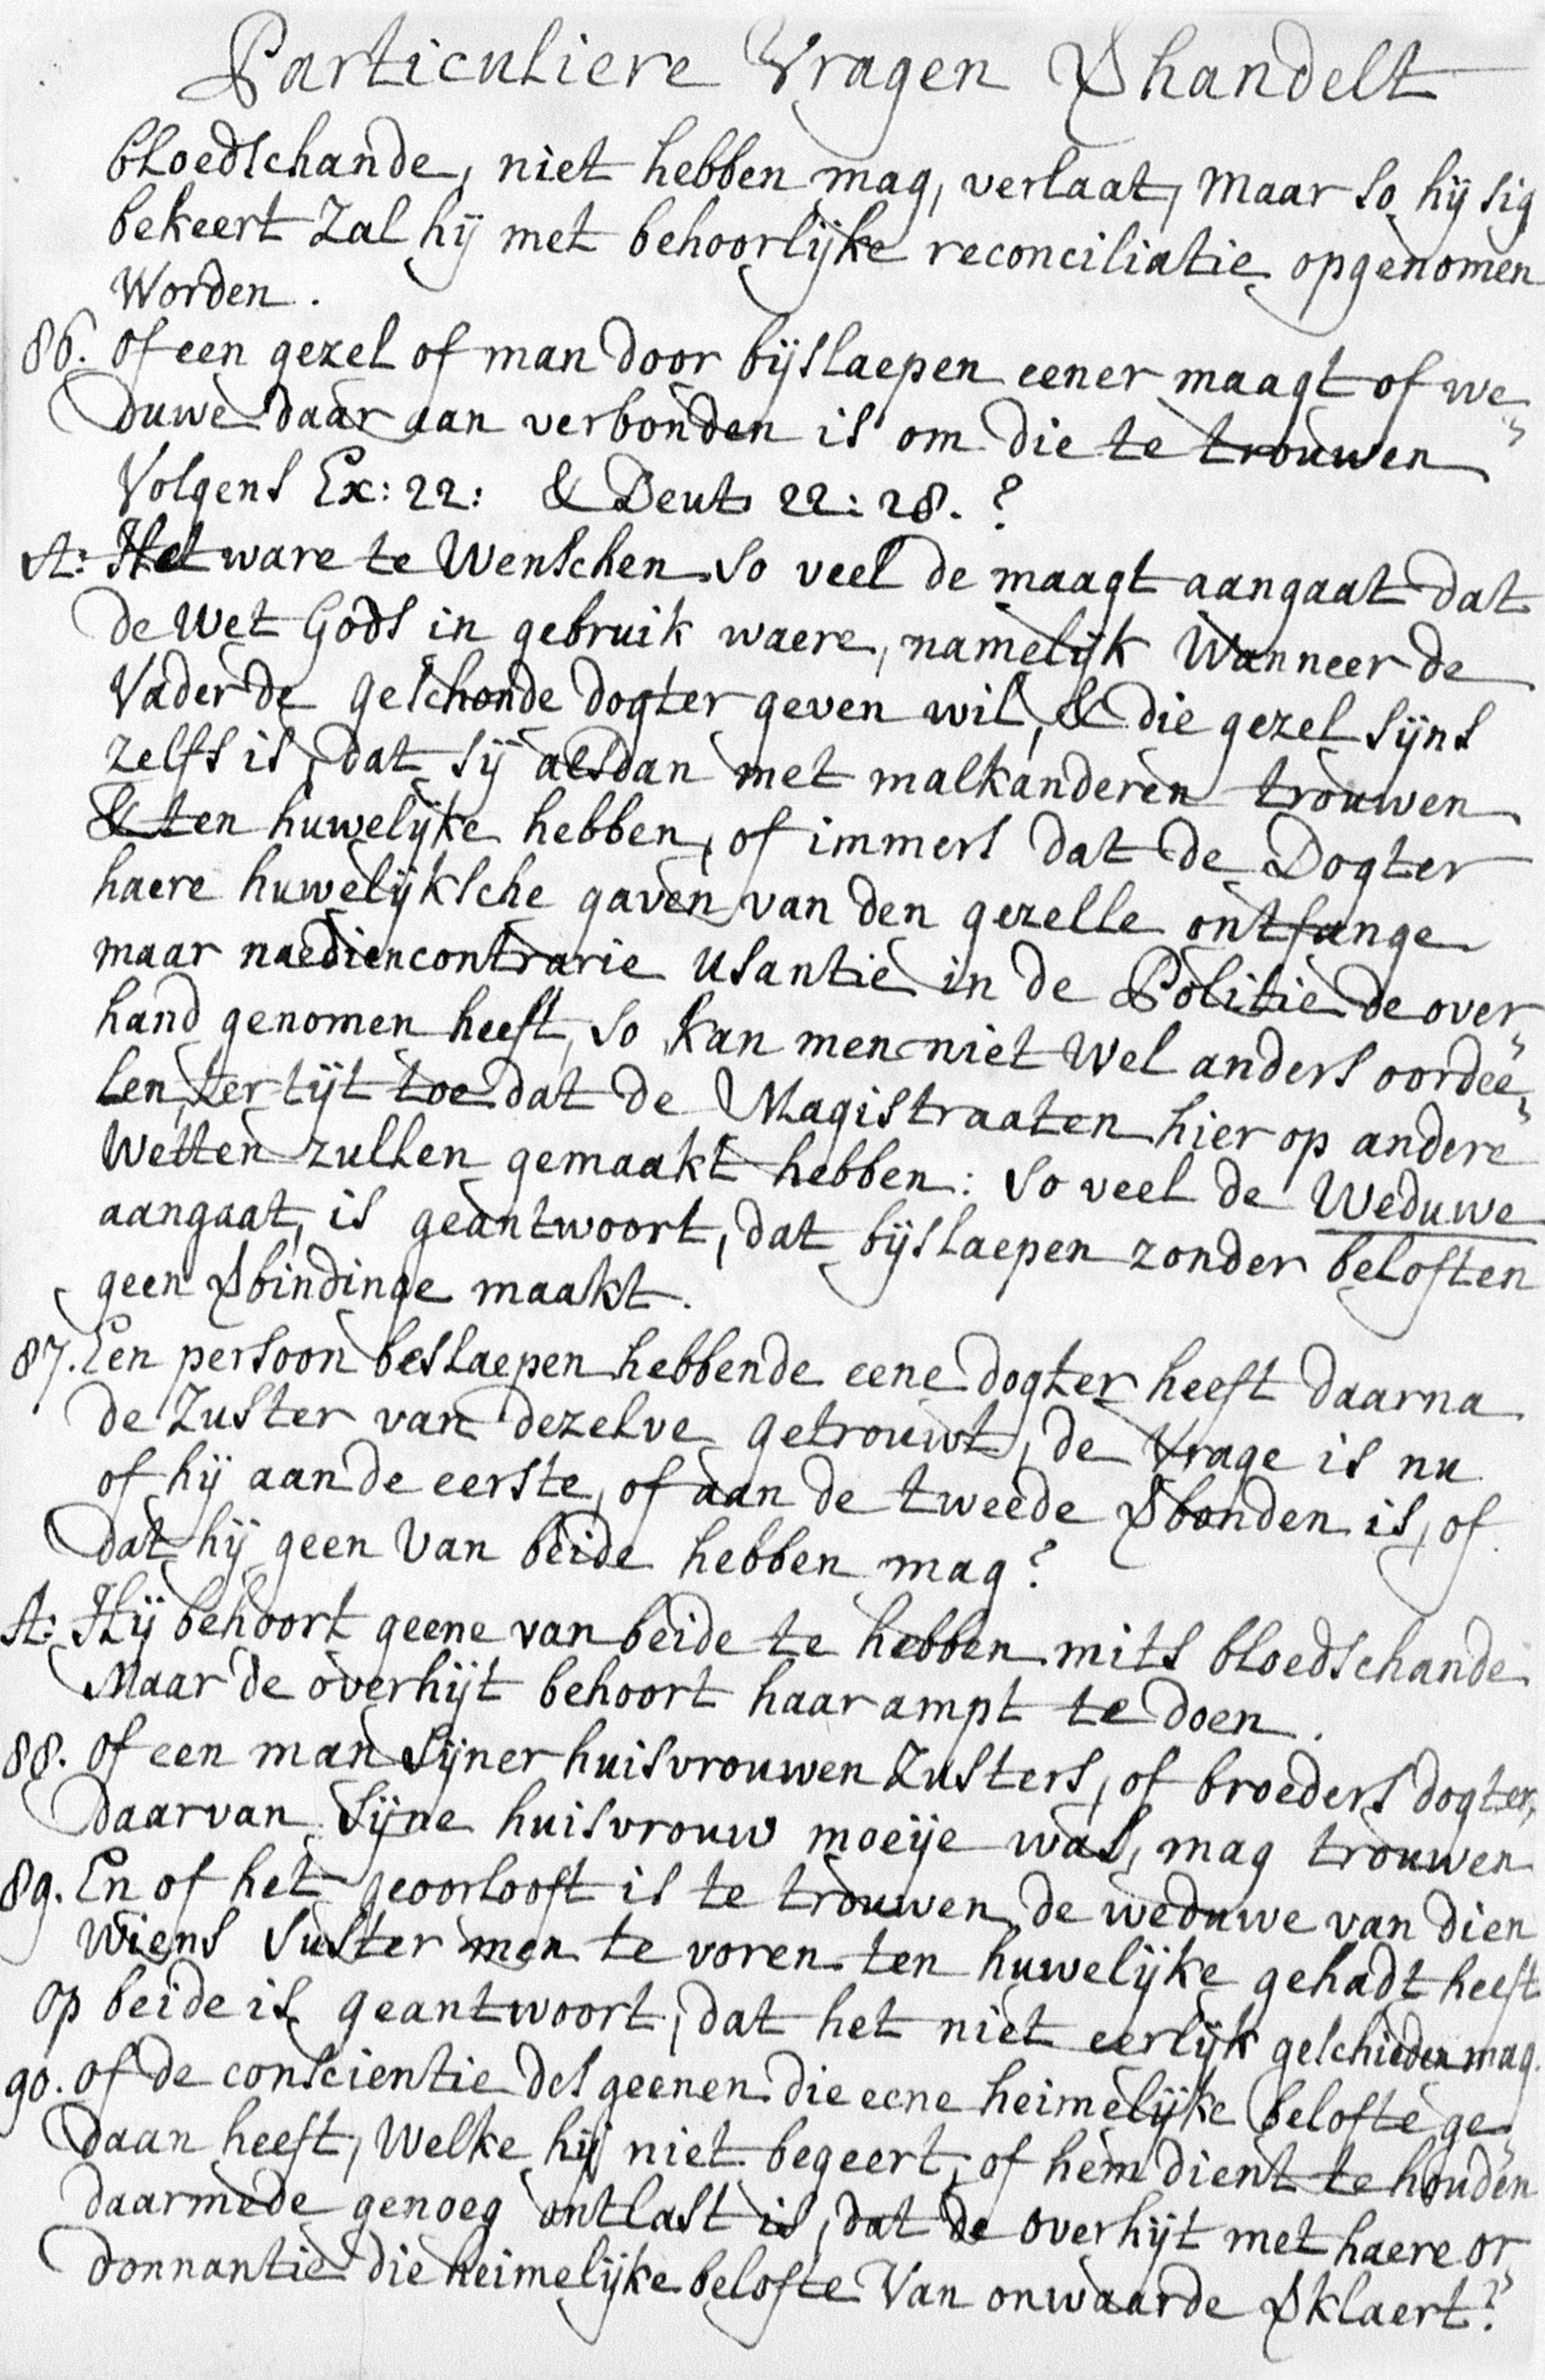 Particuliere Vragen Vhandelt
bloedschande, niet hebben mag, verlaat, maar so hij sig
bekeert zal hij met behoorlijke reconciliatie opgenomen
Worden.
86. of een gezel of man door bijslaepen eener maagt of we„
duwe daar aan verbonden is om die te trouwen
Volgens Ex: 22: & Deut. 22: 28. ?
A: Het ware te Wenschen so veel de maagt aangaat dat
de Wet Gods in gebruik waere, namelijk Wanneer de
Vader de geschonde dogter geven wil, & die gezel sijns
zelfs is, dat sij alsdan met malkanderen trouwen
& ten huwelijke hebben, of immers dat de Dogter
haere huwelijksche gaven van den gezelle ontfange
maar naedien contrarie usantie in de Politie de over„
hand genomen heeft, so kan men niet wel anders oordee„
len, ter tijt toe dat de Magistraaten hier op andere
Wetten zullen gemaakt hebben: so veel de Weduwe
aangaat, is geantwoort, dat bijslaepen zonder beloften
geen Vbindinge maakt.
87. Een persoon beslaepen hebbende eene dogter heeft daarna
de Zuster van dezelve getrouwt, de Vrage is nu
of hij aan de eerste, of aan de tweede Vbonden is, of
dat hij geen Van beide hebben mag?
A: Hij behoort geene van beide te hebben mits bloedschande
Maar de overhijt behoort haar ampt te doen.
88. of een man sijner huisvrouwen Zusters, of broeders dogter,
daarvan sijne huisvrouw moeije was, mag trouwen
89. En of het geoorlooft is te trouwen de weduwe van dien
Wiens suster men te voren ten huwelijke gehadt heeft
op beide is geantwoort, dat het niet eerlijk geschieden mag.
90. of de conscientie des geenen die eene heimelijke belofte ge„
daan heeft, Welke hij niet begeert, of hem dient te houden
daarmede genoeg ontlast is, dat de overhijt met haere or„
donnantie die heimelijke belofte Van onwaarde Vklaert?